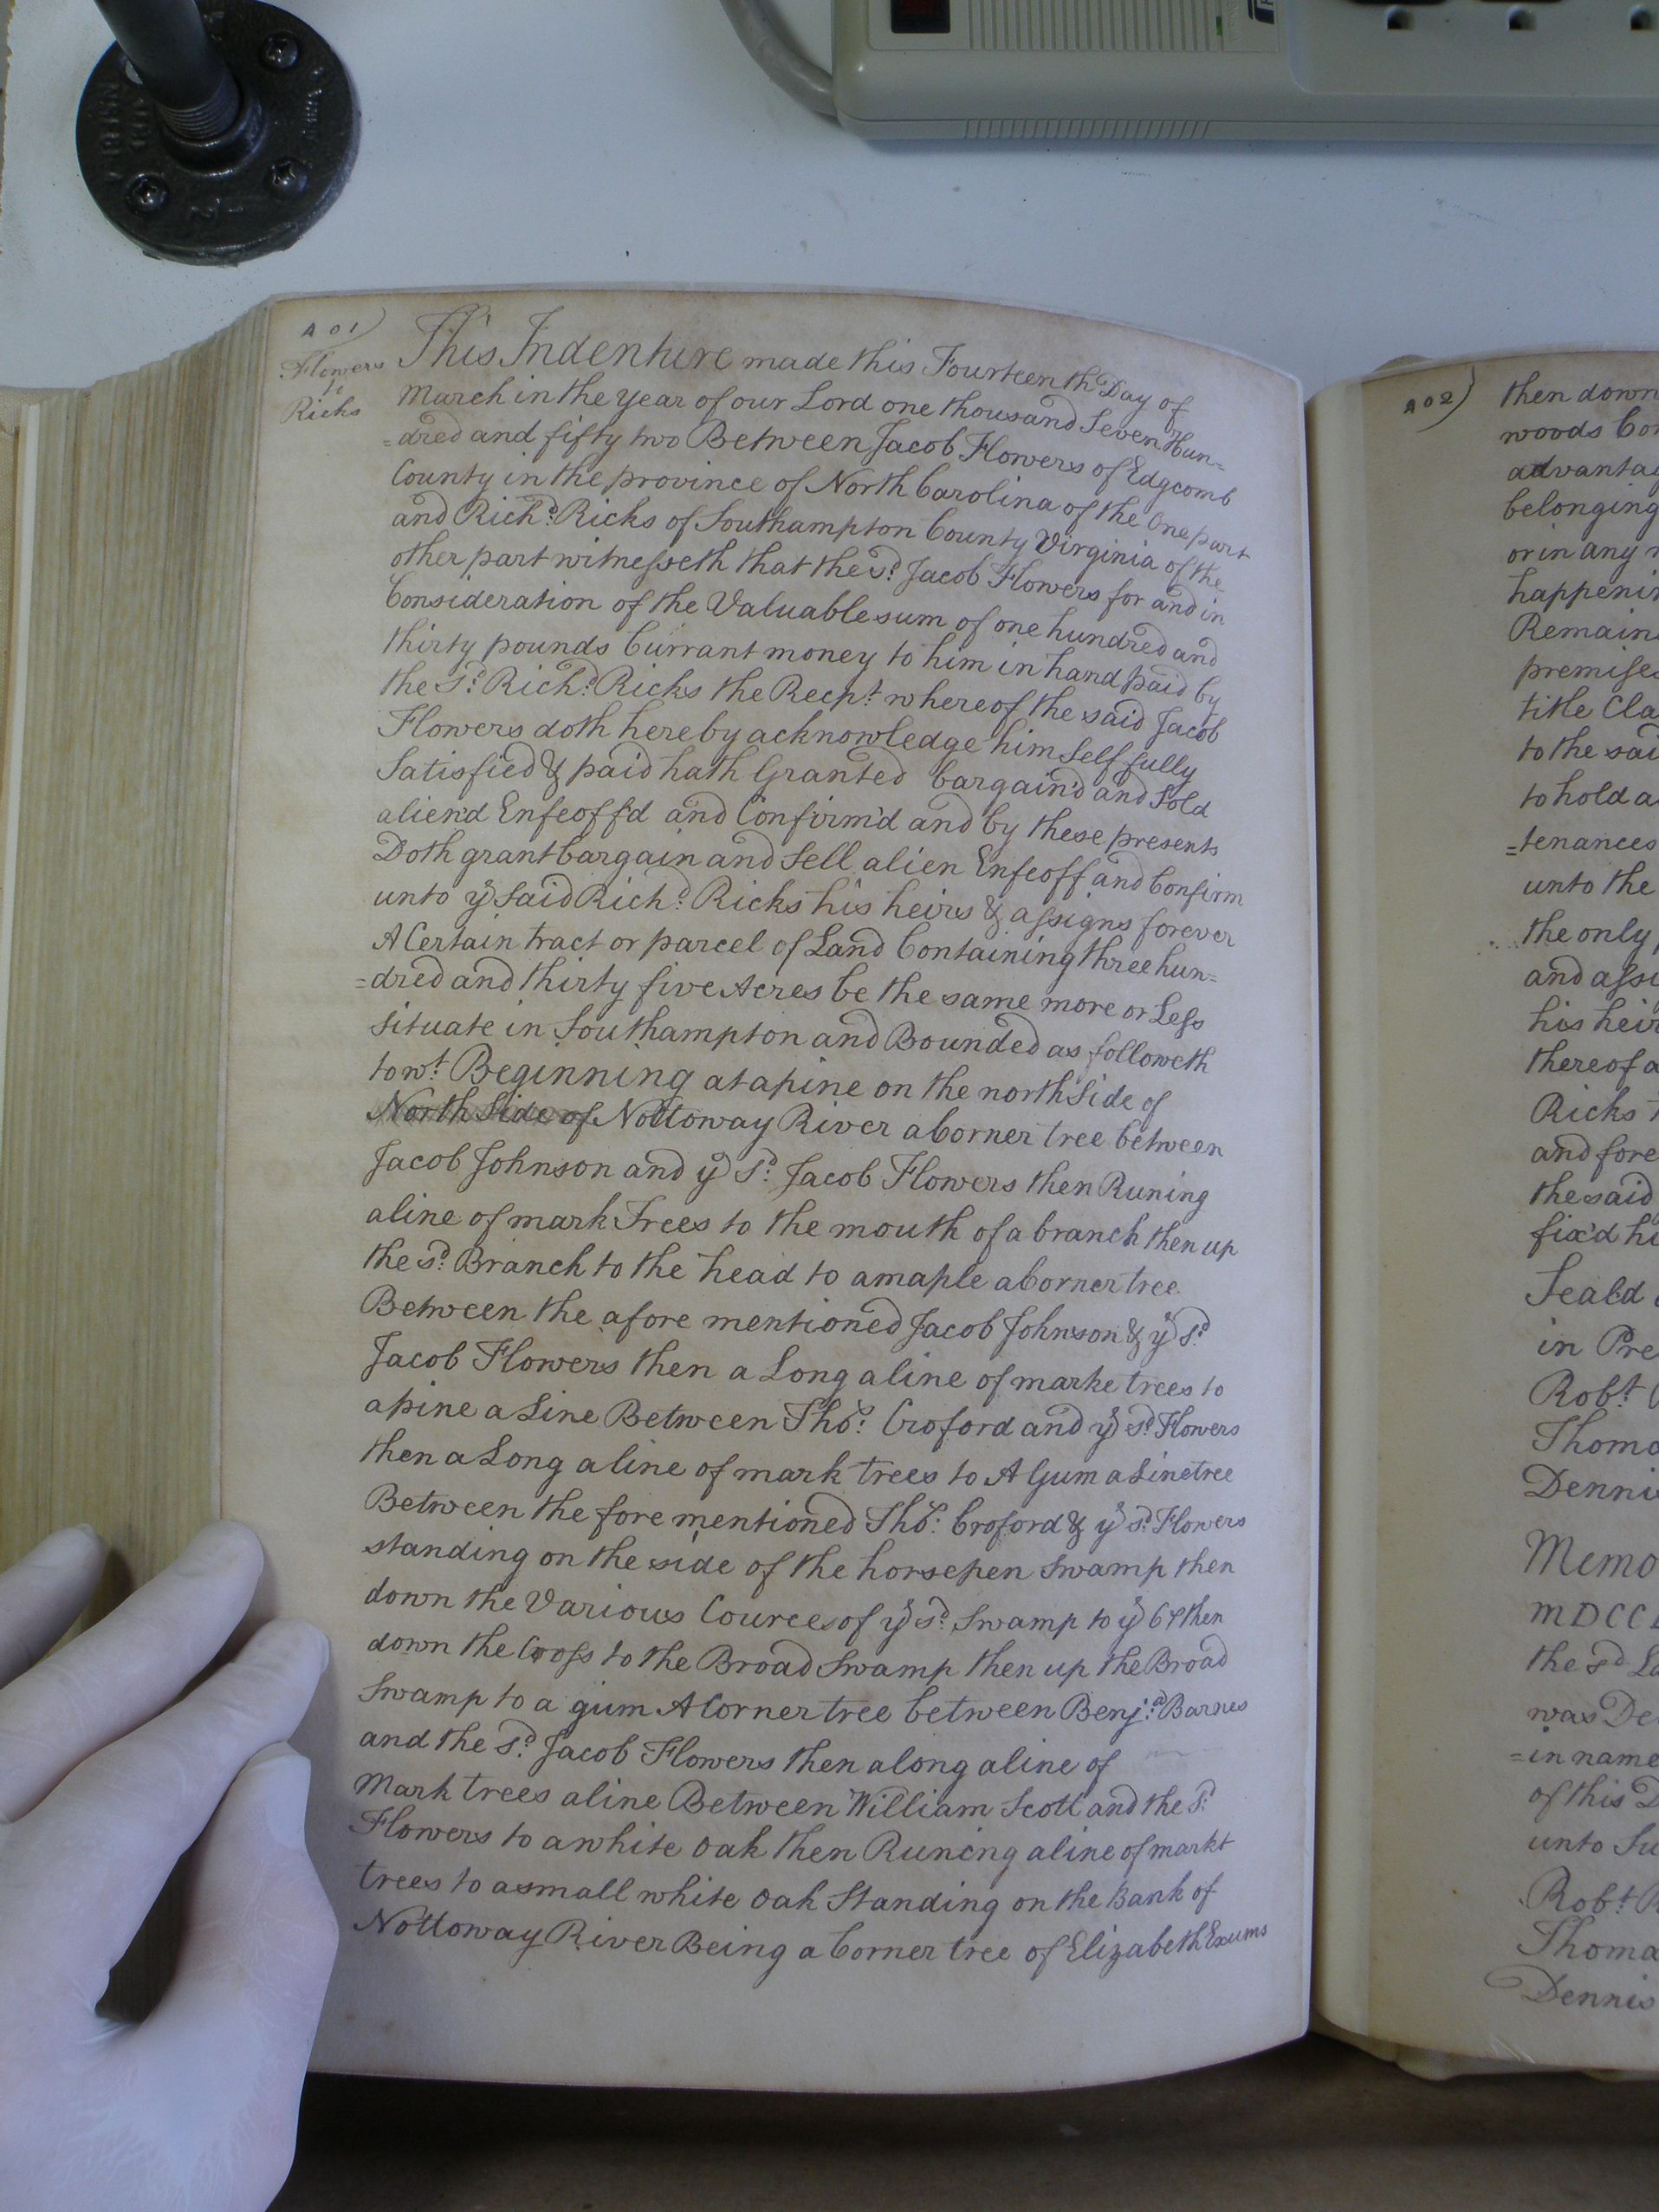 401)
Flowers
to
Ricks
This Indenture made this Fourteenth Day of
March in the year of our Lord one thousand Seven Hun=
=dred and fifty two Between Jacob Flowers of Edgcomb
County in the province of North Carolina of the One part
and Richd. Ricks of Southampton County Virginia of the
other part witnesseth that the sd. Jacob Flowers for and in
Consideration of the Valuable sum of one hundred and
thirty pounds Currant money to him in hand paid by
the sd. Richd. Ricks the Recpt. whereof the said Jacob
Flowers doth hereby acknowledge him self fully
Satisfied & paid hath Granted bargain'd and Sold
alien'd Enfeoff'd and Confirm'd and by these presents
Doth grant bargain and Sell alien Enfeoff and Confirm
unto ye said Richd. Ricks his heirs & assigns forever
A Certain tract or parcel of Land Containing three hun=
=dred and thirty five Acres be the same more or Less
Situate in Southampton and Bounded as followeth
towt. Beginning at a pine on the north Side of
North Side of Nottoway River a Corner tree between
Jacob Johnson and ye sd. Jacob Flowers then Runing
a line of mark Trees to the mouth of a branch then up
the sd. Branch to the head to a maple a Corner tree
Between the afore mentioned Jacob Johnson & ye sd.
Jacob Flowers then a Long a line of marke trees to
a pine a Line Between Thos: Croford and ye sd. Flowers
then a Long a line of mark trees to A Gum a Line tree
Between the fore mentioned Thos: Croford & ye sd. Flowers
standing on the side of the horsepen Swamp then
down the Various Cources of ye sd. Swamp to ye then
down the to the Broad Swamp then up the Broad
Swamp to a gum A Corner tree between Benja. Barnes
and the sd. Jacob Flowers then along a line of
Mark trees a line Between William Scott and the sd.
Flowers to a white oak then Runing a line of markt
trees to a small white oak Standing on the Bank of
Nottoway River Being a Corner tree of Elizabeth Exums
402)
then down
woods
belonging
or in any
title
to the
to hold
=tenances
unto the
the only
and
his
thereof
Ricks
and
the said
fix'd
Seald
in
Robt.
MDCC
the sd
was
=in name
of this
unto
Robt.
Dennis